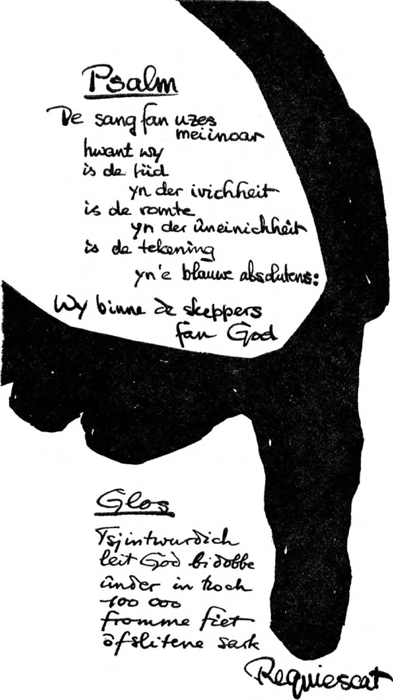 Psalm
De sang fan uzes
meiinoar
hwant wy
is de tiid
yn der ivichheit
is de romte
yn der ûneinichheit
is de tekening
yn'e blauwe absolutens:
Wy binne de skeppers
fan God
Glos
Tsjintwurdich
leit God bidobbe
ûnder in troch
100 000
fromme fiet
ôfslitene sark
Requiescat